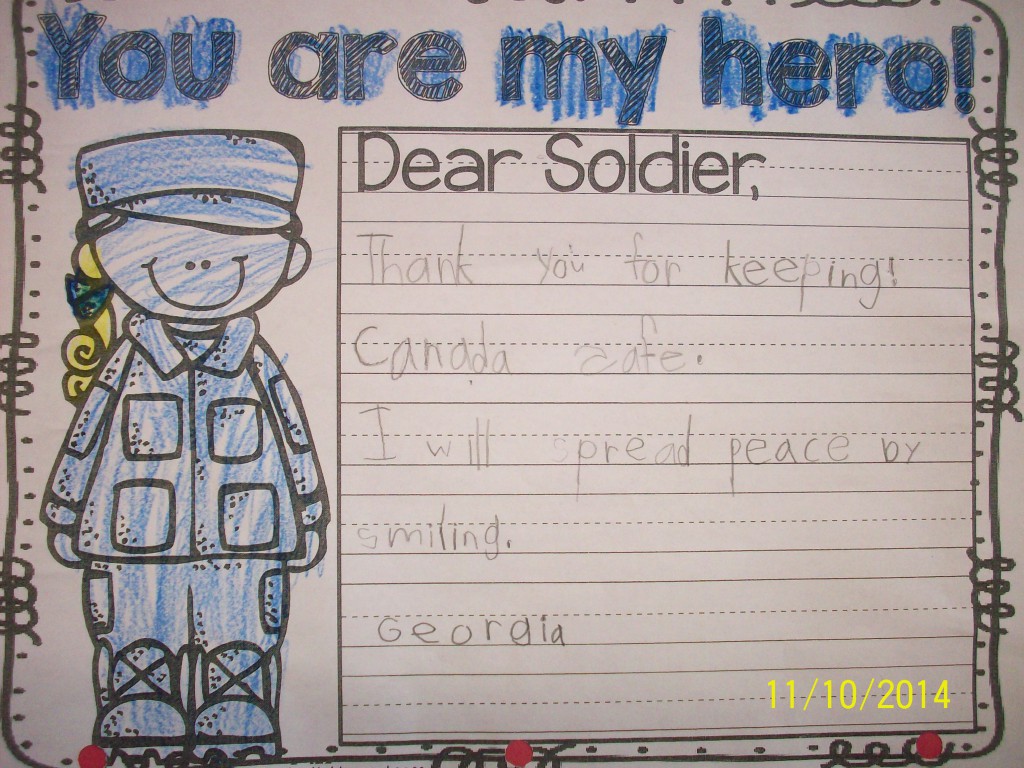 You are my hero!
Dear Soldier,
Thank you for keeping!
Canada safe.
I will spread peace by
smiling.
Georgia
11/10/2014